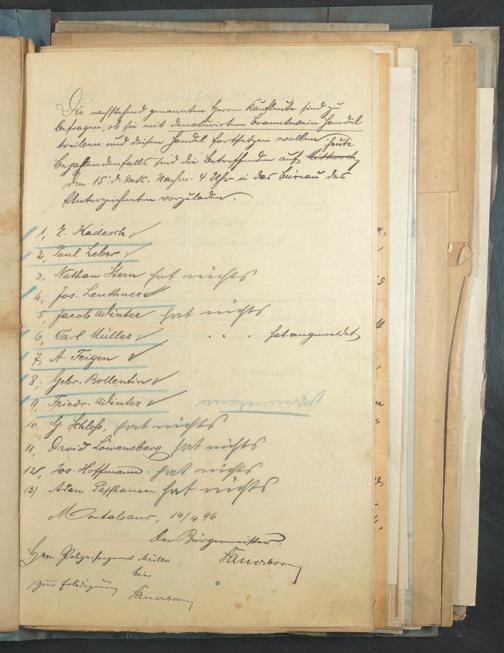 Die nachstehend genannten Herrn Kaufleute sind zu
befragen, ob sie mit denaturirtem Branntwein Handel
treiben und diesen Handel fortsetzen wollen.
Bejahendenfalls sind die Betreffenden auf heute Mittwoch,
den 15. d. Mts. Nachm. 4 Uhr in das Büreau des
Unterzeichneten vorzuladen.
1, Kadesch
2, Paul Leber
3, Nathan Stern hat nichts
4, Jos. Leuthner
5 Jacob Winter hat nichts
6, Carl Müller . . . hat angemeldet
7, A. Feigen
8, Gebr. Bollentin
9, Friedr. Winter
10, G. Schloß, hat nichts
11, David Löwensberg hat nichts
12, Jos Hoffmann. hat nichts
13) Adam hat nichts
Montabaur, 14/4 96
Der Bürgermeister.
Sauerborn
Herrn Polizeisergeant Müller
hier
zur Erledigung
Sauerborn